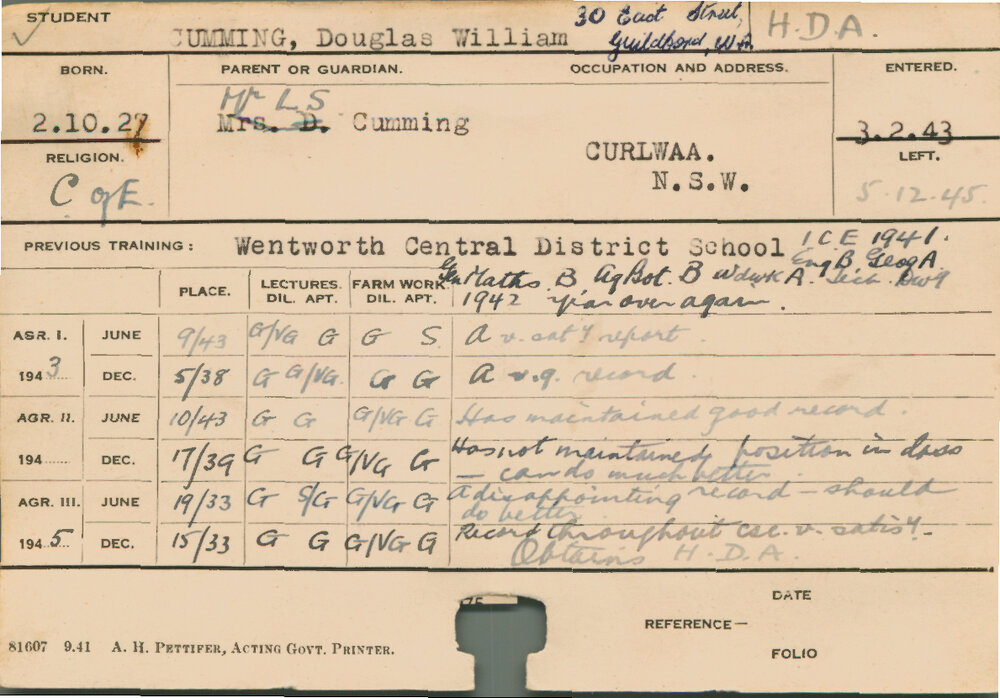 STUDENT
CUMMING, Douglas William
30 East Street,
Guildford, W.A.
H.D.A.
BORN.
PARENT OR GUARDIAN.
OCCUPATION AND ADDRESS.
ENTERED.
Mr L S
2.10.27
Mrs. D. Cumming
3.2.43
CURLWAA.
N.S.W.
RELIGION.
C of E.
LEFT.
5.12.45.
PREVIOUS TRAINING: Wentworth Central District School I C E 1941.
Eng B Geog A
Maths B Ag Bot. B Wdwk A. Tech. Dwg
1942 year over again.
PLACE. LECTURES. DIL. APT. FARM WORK DIL. APT.
AGR. I. JUNE 9/43 G/VG G G S. A v. sat'y report.
1943 DEC. 5/38 G G/VG. G G A v.g. record.
AGR. II. JUNE 10/43 G G G/VG G Has maintained good record.
194 DEC. 17/39 G G G/VG G Has not maintained position in class
— can do much better
AGR. III. JUNE 19/33 G S/G G/VG G A disappointing record – should
do better
1945. DEC. 15/33 G G G/VG G Record throughout cse. v. satis'y.
Obtains H.D.A.
75
DATE
REFERENCE—
FOLIO
81607 9.41 A. H. PETTIFER, ACTING GOVT. PRINTER.